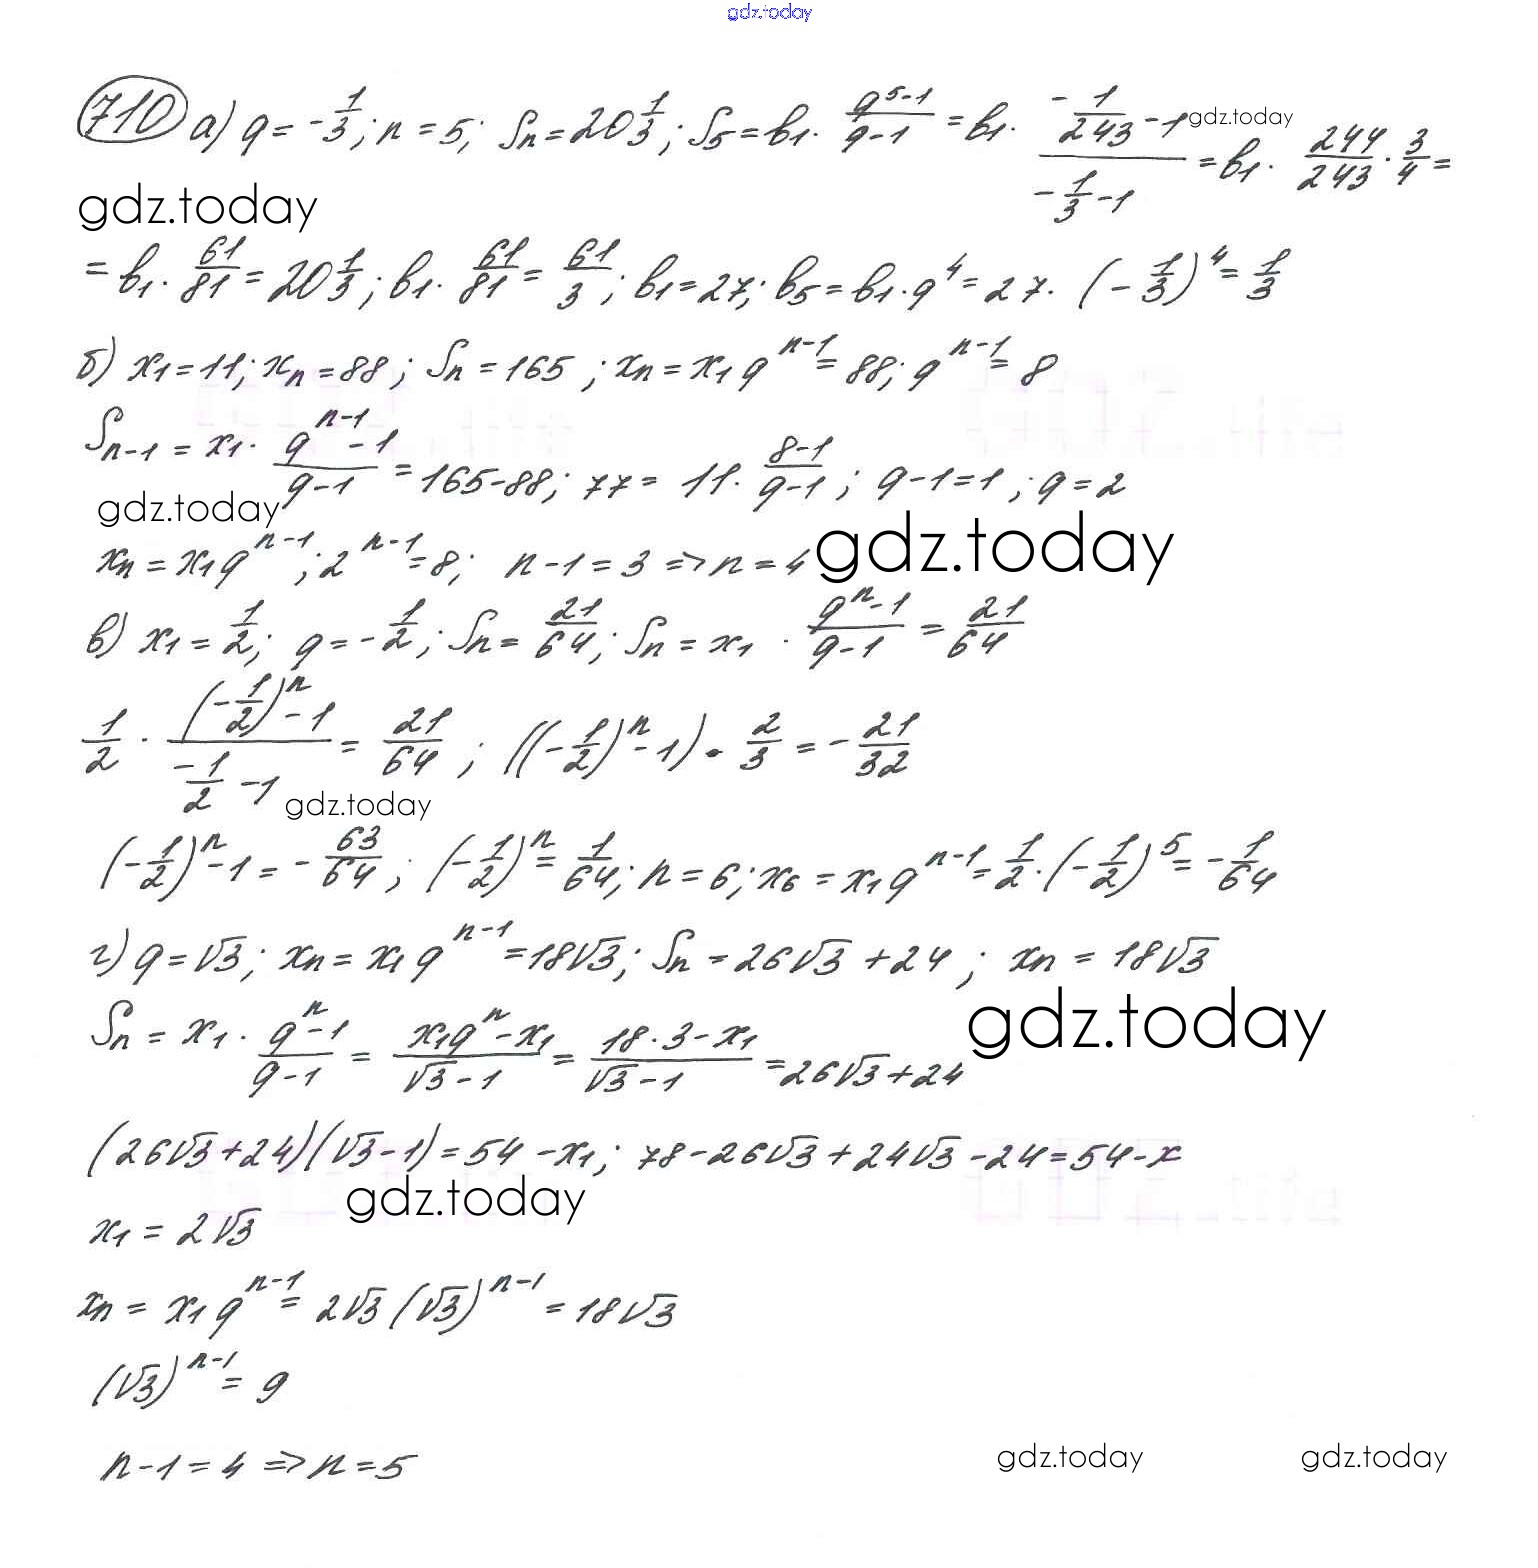 gdz.today
710 а) q = -1/3; n = 5; Sn = 20 1/3; S5 = b1 · (q^5-1)/(q-1) = b1 · (-1/243 - 1)/(-1/3 - 1) = b1 · 244/243 · 3/4 =
gdz.today
gdz.today
= b1 · 61/81 = 20 1/3; b1 · 61/81 = 61/3; b1 = 27; b5 = b1 · q^4 = 27 · (-1/3)^4 = 1/3
б) x1 = 11; xn = 88; Sn = 165; xn = x1 q^(n-1) = 88; q^(n-1) = 8
Sn-1 = x1 · (q^(n-1) - 1)/(q-1) = 165-88; 77 = 11 · (8-1)/(q-1); q-1 = 1; q = 2
gdz.today
xn = x1 q^(n-1); 2^(n-1) = 8; n-1 = 3 => n = 4
gdz.today
в) x1 = 1/2; q = -1/2; Sn = 21/64; Sn = x1 · (q^n - 1)/(q-1) = 21/64
1/2 · ((-1/2)^n - 1)/(-1/2 - 1) = 21/64; ((-1/2)^n - 1) · 2/3 = -21/32
gdz.today
(-1/2)^n - 1 = -63/64; (-1/2)^n = 1/64; n = 6; x6 = x1 q^(n-1) = 1/2 · (-1/2)^5 = -1/64
г) q = √3; xn = x1 q^(n-1) = 18√3; Sn = 26√3 + 24; xn = 18√3
Sn = x1 · (q^n - 1)/(q-1) = (x1 q^n - x1)/(√3 - 1) = (18 · 3 - x1)/(√3 - 1) = 26√3 + 24
gdz.today
(26√3 + 24)(√3 - 1) = 54 - x1; 78 - 26√3 + 24√3 - 24 = 54 - x
gdz.today
x1 = 2√3
xn = x1 q^(n-1) = 2√3 (√3)^(n-1) = 18√3
(√3)^(n-1) = 9
n-1 = 4 => n = 5
gdz.today
gdz.today